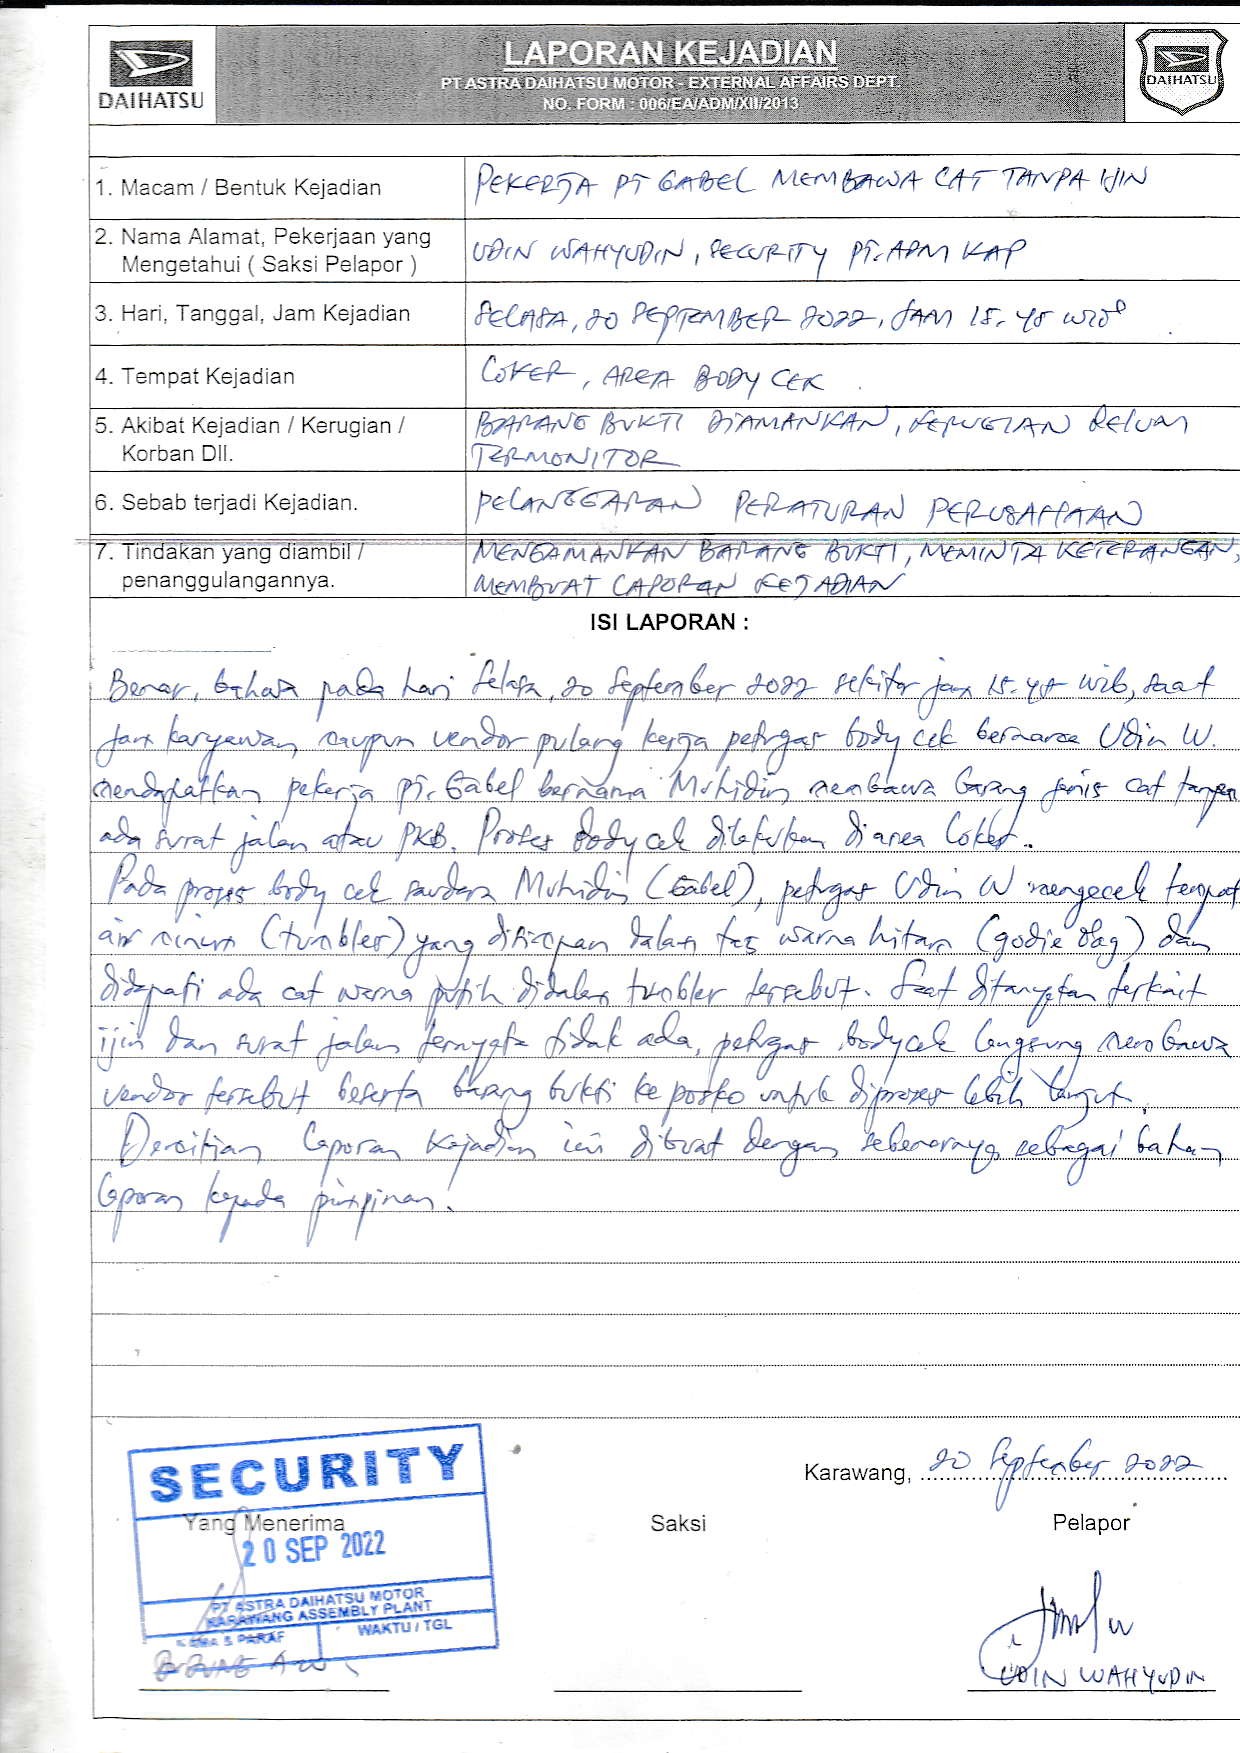 DAIHATSU
LAPORAN KEJADIAN
PT ASTRA DAIHATSU MOTOR - EXTERNAL AFFAIRS DEPT
NO. FORM : 006/EA/ADM/XII/2013
DAIHATSU
1. Macam / Bentuk Kejadian
PEKERJA PT GABEL MEMBAWA CAT TANPA IJIN
2. Nama Alamat, Pekerjaan yang
Mengetahui ( Saksi Pelapor )
UDIN WAHYUDIN, SECURITY PT. ADM KAP
3. Hari, Tanggal, Jam Kejadian
SELASA, 20 SEPTEMBER 2022, JAM 15.45 WIB
4. Tempat Kejadian
LOKER, AREA BODY CEK
5. Akibat Kejadian / Kerugian /
Korban Dll.
BARANG BUKTI DIAMANKAN, KERUGIAN BELUM
TERMONITOR
6. Sebab terjadi Kejadian.
PELANGGARAN PERATURAN PERUSAHAAN
7. Tindakan yang diambil /
penanggulangannya.
MENGAMANKAN BARANG BUKTI, MEMINTA KETERANGAN,
MEMBUAT LAPORAN KEJADIAN
ISI LAPORAN :
Benar, bahwa pada hari Selasa, 20 September 2022 sekitar jam 15.45 wib, saat
jam karyawan maupun vendor pulang kerja petugas body cek bernama Udin W.
mendapatkan pekerja PT. Gabel bernama Muhidin membawa barang jenis cat tanpa
ada surat jalan atau PKB. Proses Body cek dilakukan di area Loker.
Pada proses body cek saudara Muhidin (Gabel), petugas Udin W mengecek tempat
air minum (tumbler) yang disimpan dalam tas warna hitam (godie bag) dan
didapati ada cat warna putih didalam tumbler tersebut. Saat ditanyakan terkait
ijin dan surat jalan ternyata tidak ada, petugas bodycek langsung membawa
vendor tersebut beserta barang bukti ke posko untuk diproses lebih lanjut.
Demikian laporan kejadian ini dibuat dengan sebenarnya, sebagai bahan
laporan kepada pimpinan.
Karawang, 20 September 2022
SECURITY
Yang Menerima
20 SEP 2022
PT ASTRA DAIHATSU MOTOR
KARAWANG ASSEMBLY PLANT
NAMA & PARAF
WAKTU / TGL
Saksi
Pelapor
UDIN WAHYUDIN